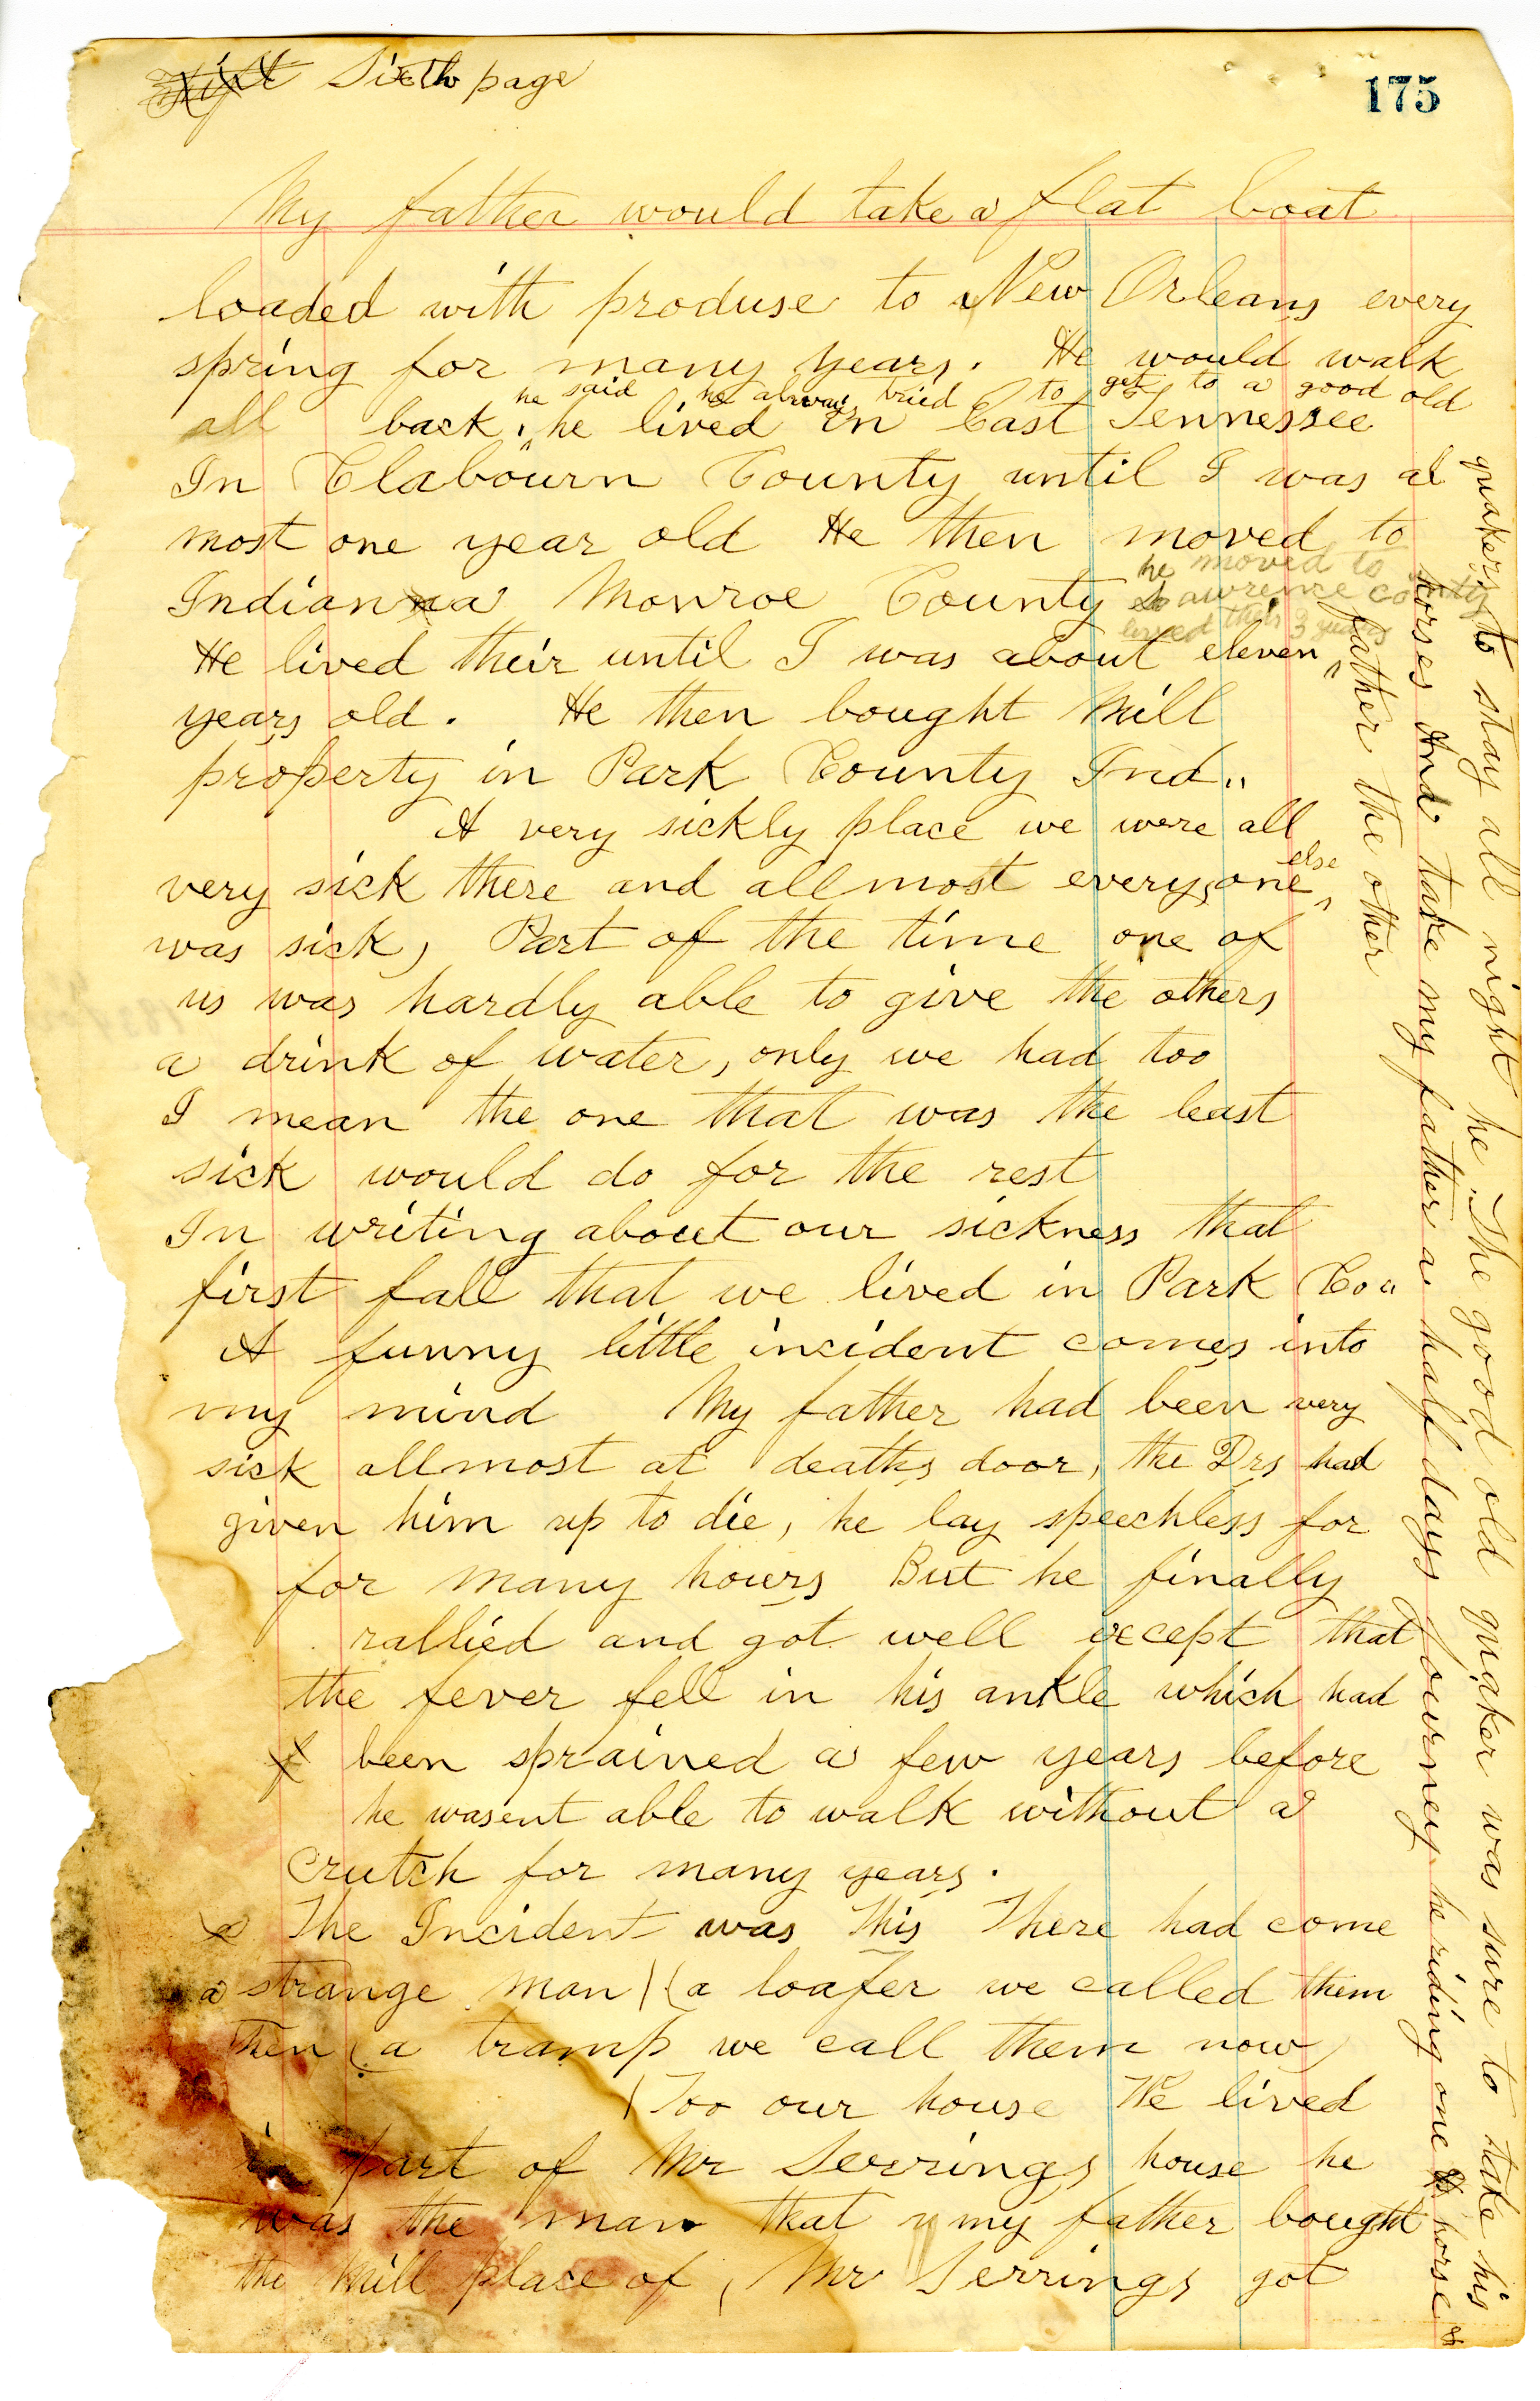 Sixth page
175
My father would take a flat boat
loaded with produse to New Orleans every
spring for many years. He would walk
he said he always tried to get to a good old
all back, he lived in East Tennessee
In Clabourn County until I was al
most one year old He then moved to
he moved to
Indiana Monroe County Lawrence county
lived their 3 years
He lived their until I was about eleven
years old. He then bought Mill
property in Park County Ind..
A very sickly place we were all
else
very sick there and allmost every one
was sick, Part of the time one of
us was hardly able to give the others
a drink of water, only we had too
I mean the one that was the least
sick would do for the rest
In writing about our sickness that
first fall that we lived in Park Co..
A funny little incident comes into
my mind My father had been very
sick allmost at deaths door, the Drs had
given him up to die, he lay speechless for
for many hours But he finally
rallied and got well except that
the fever fell in his ankle which had
been sprained a few years before
he wasent able to walk without a
Crutch for many years.
The Incident was this There had come
a strange man (a loafer we called them
then (a tramp we call them now)
(Too our house We lived
in part of Mr Serrings house he
was the man that my father bought
the Mill place of, Mr Serrings got
quakers to stay all night he. The good old quaker was sure to take his
horses And take my father a half days journey he riding one horse &
father the other